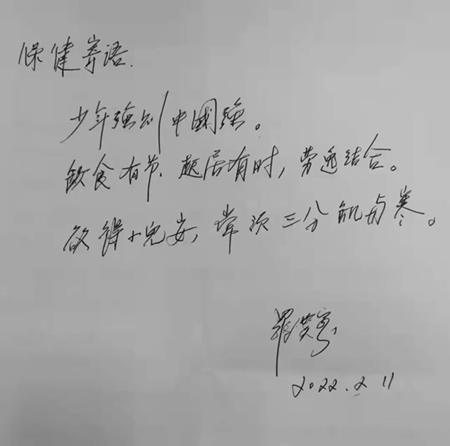 保健寄语.
少年强则中國强。
飲食有节、起居有时，劳逸结合。
欲得小儿安，常须三分飢与寒。
2022.2.11